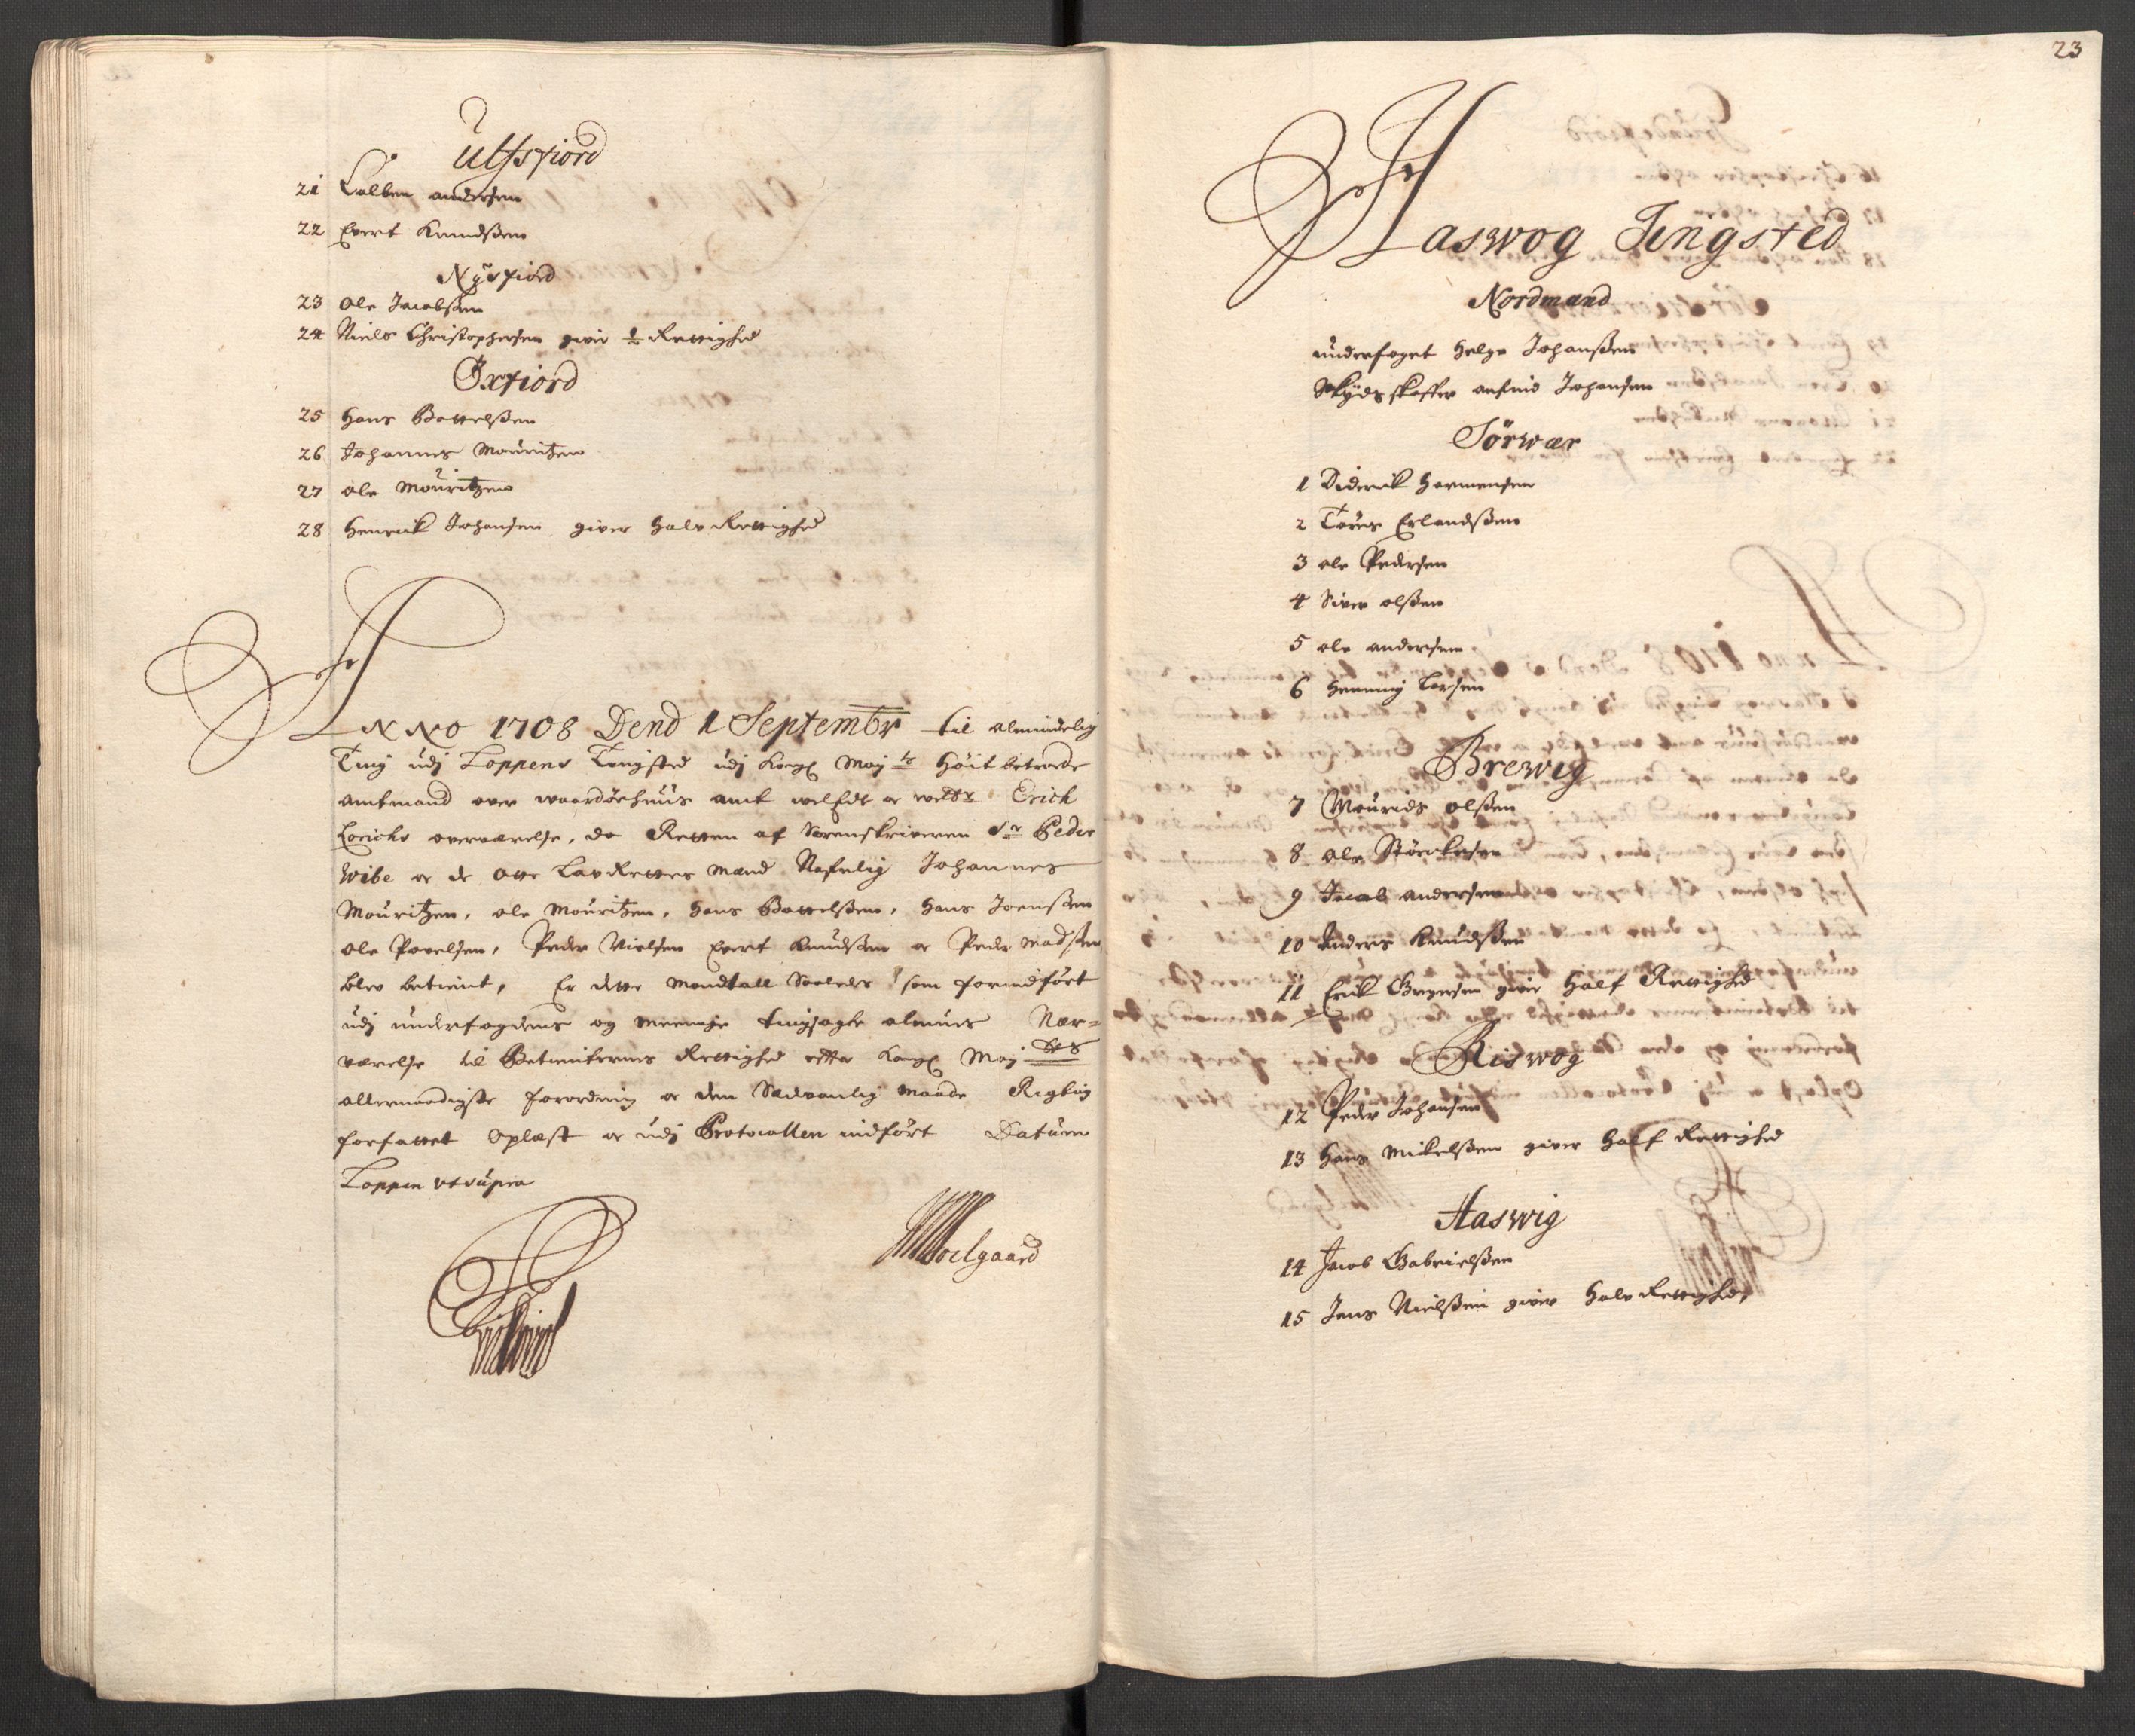 Ulfsfiord
21 Colben andersen
22 Evert Knudsßen
Nÿsfiord
23 ole Jacobsßen
24 Niels Christophersen giver ½ Rettighed
Öxfiord
25 Hans Bottelsßen
26 Johannes Mouritzen
27 ole Mouritzen
28 Henrick Johansen giver halv Rettighed
ANNO 1708 Dend 1 Septembr til almindelig
Ting udj Loppens Tingsted udj Kongl May ts Höitbetroede
amtmand over waardöehuus amt Erich
Lorichs overværelse, da Retten af Sorenskriveren Sr Peder
Wibe oc de otte LavRettes Mænd Nafnlig Johannes
Mouritzen, ole Mouritzen, Hans Bottelsßen, Hans Joensßen
ole Povelsen, Peder Nielsen Evert Knudsßen oc Peder Madsßen
blev betient, Er dette Mandtall Saaledes som forindfört
udj underfogdens og meenige tingsögte almues Nær-
værelse til Betienternes Rettighed efter Kongl May sts
allernaadigste forordning oc den Sædvanlig Maade Rigtig
forfattet Oplæst oc udj Protocollen indfört Datum
Loppen vt supra
Soelgaard
23
Haswog Tingsted
Nordmænd
underfoget Helge Johansßen
Skÿdsskaffer Johansen
Sörwær
1 Diderick Harmensen
2 Töris Erlandsßen
3 ole Pedersen
4 Siver olsßen
5 ole andersen
6 Henning Larsen
Brewig
7 Mourids olsßen
8 ole Störckersen
9 Jacob andersen
10 Anders Knudsßen
11 Erick Gregersen giver Half Rettighed
Riswog
12 Peder Johansen
13 Hans Mickelsßen giver Half Rettighed
Haswig
14 Jacob Gabrielsßen
15 Jens Nielsßen giver Halv Rettighed,